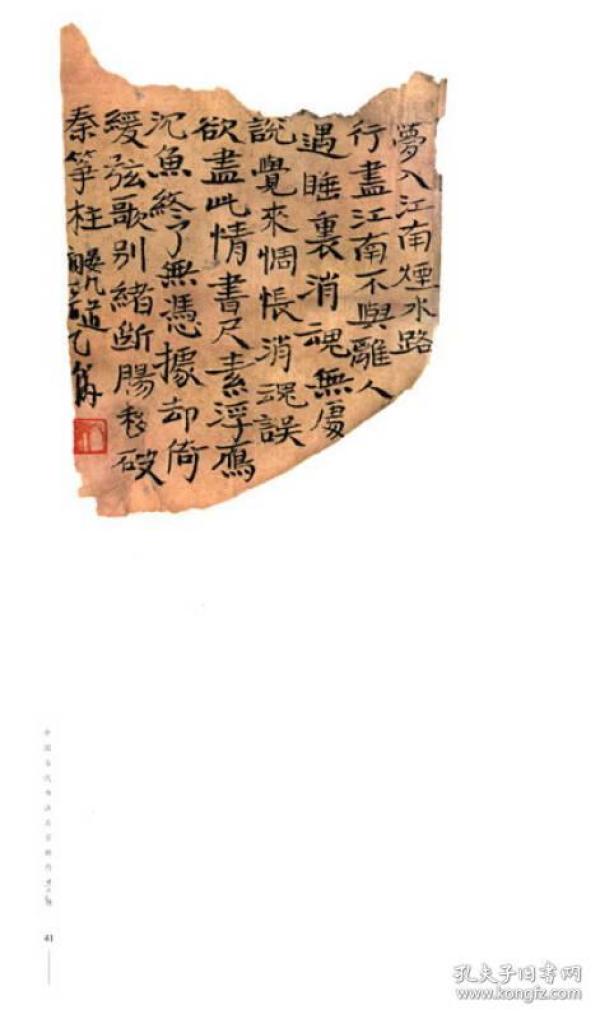 夢入江南煙水路
行盡江南不與離人
遇睡裏消魂無處
說覺來惆悵消魂誤
欲盡此情書尺素浮鴈
沉魚終了無憑據却倚
緩弦歌別緒斷腸移破
秦箏柱 晏几道
41
孔夫子旧书网
www.kongfz.com